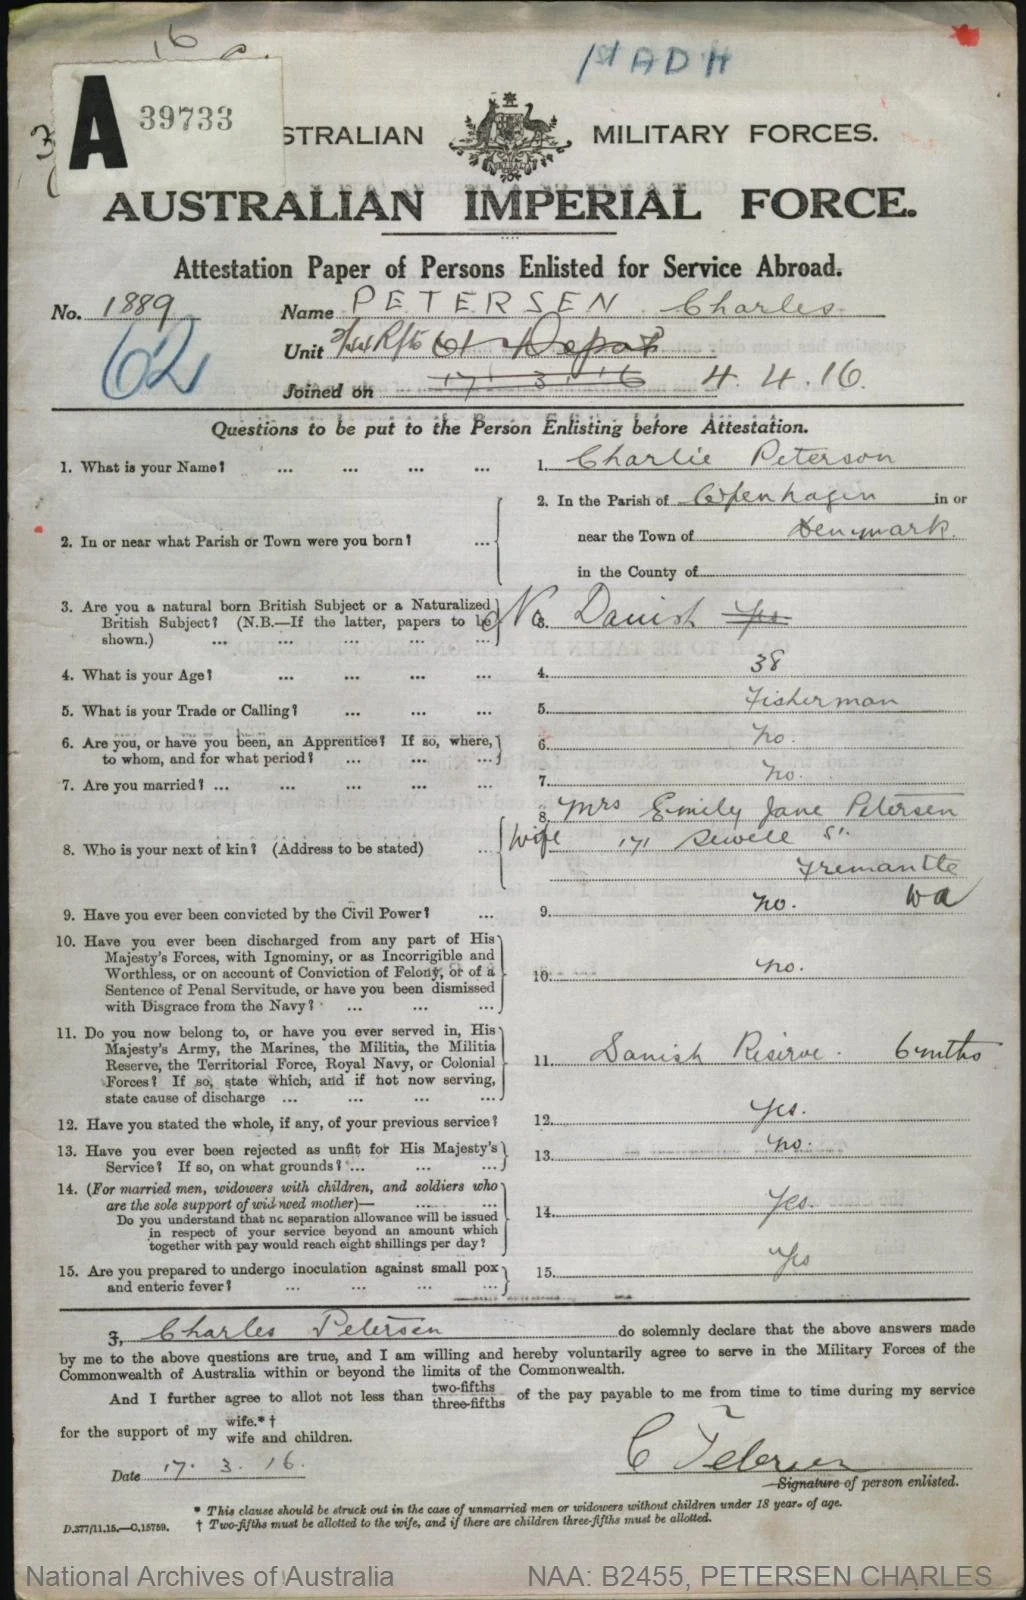 16
1st A D H
A 39733
STRALIAN MILITARY FORCES.
AUSTRALIAN IMPERIAL FORCE.
Attestation Paper of Persons Enlisted for Service Abroad.
No. 1889 Name PETERSEN Charles
62
Unit 3/44 Rfts 61 Depot
Joined on 17. 3. 16 4. 4. 16.
Questions to be put to the Person Enlisting before Attestation.
1. What is your Name? ... ... ... ... 1. Charlie Peterson
2. In or near what Parish or Town were you born? ... 2. In the Parish of Copenhagen in or
near the Town of Denmark.
in the County of
3. Are you a natural born British Subject or a Naturalized British Subject? (N.B.—If the latter, papers to be shown.) ... ... ... ... No 3. Danish Yes
4. What is your Age? ... ... ... 4. 38
5. What is your Trade or Calling? ... ... ... 5. Fisherman
6. Are you, or have you been, an Apprentice? If so, where, to whom, and for what period? ... ... ... 6. No.
7. Are you married? ... ... ... ... ... 7. No.
8. Who is your next of kin? (Address to be stated) ... 8. Mrs Emily Jane Petersen
Wife 171 Sewell St.
Fremantle
W A
9. Have you ever been convicted by the Civil Power? ... 9. No.
10. Have you ever been discharged from any part of His
Majesty's Forces, with Ignominy, or as Incorrigible and
Worthless, or on account of Conviction of Felony, or of a
Sentence of Penal Servitude, or have you been dismissed
with Disgrace from the Navy? ... ... ... 10. No.
11. Do you now belong to, or have you ever served in, His
Majesty's Army, the Marines, the Militia, the Militia
Reserve, the Territorial Force, Royal Navy, or Colonial
Forces? If so, state which, and if not now serving,
state cause of discharge ... ... ... ... 11. Danish Reserve. 6 mths
12. Have you stated the whole, if any, of your previous service? 12. Yes.
13. Have you ever been rejected as unfit for His Majesty's
Service? If so, on what grounds? ... ... ... 13. No.
14. (For married men, widowers with children, and soldiers who
are the sole support of widowed mother)— ... ...
Do you understand that no separation allowance will be issued
in respect of your service beyond an amount which
together with pay would reach eight shillings per day? 14. Yes.
15. Are you prepared to undergo inoculation against small pox
and enteric fever? ... ... ... ... 15. Yes
I, Charles Petersen do solemnly declare that the above answers made
by me to the above questions are true, and I am willing and hereby voluntarily agree to serve in the Military Forces of the
Commonwealth of Australia within or beyond the limits of the Commonwealth.
And I further agree to allot not less than two-fifths three-fifths of the pay payable to me from time to time during my service
for the support of my wife.*† wife and children.
Date 17. 3. 16. C Petersen
Signature of person enlisted.
* This clause should be struck out in the case of unmarried men or widowers without children under 18 years of age.
D.377/11.15.—C.15759. † Two-fifths must be allotted to the wife, and if there are children three-fifths must be allotted.
National Archives of Australia NAA: B2455, PETERSEN CHARLES